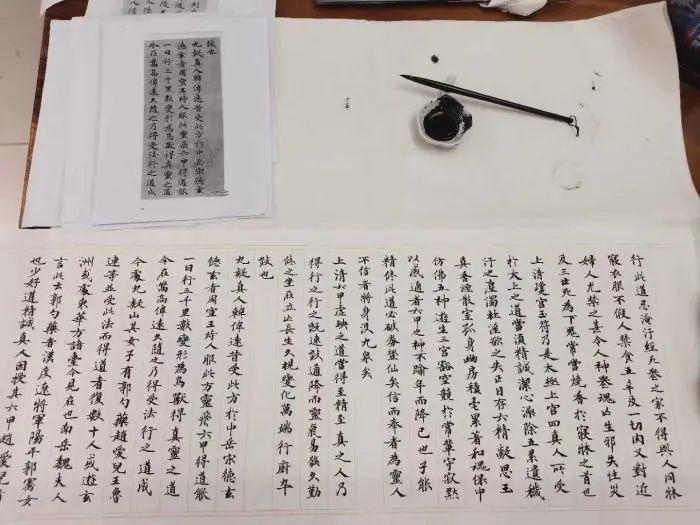 致也
九疑真人韓偉遠昔受此方於中岳宋德玄
德玄者周宣王時人服此靈飛六甲得道能
一日行三千里數變形為鳥獸得真靈之道
今在嵩高偉遠久隨之乃得受法行之道成
行此道忌淹汙經死喪之家不得與人同牀
寢衣服不假人禁食五辛及一切肉又對近
婦人尤禁之甚令人神喪魂亡生邪失性災
及三世死為下鬼常當燒香於寢牀之首也
上清瓊宮玉符乃是太極上宮四真人所受
於太上之道當須精誠潔心澡除五累遺穢
汙之塵濁杜淫欲之失正目存六精凝思玉
真香煙散室孤身幽房積毫累著和魂保中
仿佛五神遊生三宮豁空競於常輩守寂默
以感通者六甲之神不踰年而降己也子能
精修此道必破券登仙矣信而奉者為靈人
不信者將身沒九泉矣
上清六甲虛映之道當得至精至真之人乃
得行之行之既速致通降而靈氣易發久勤
修之坐在立亡長生久視變化萬端行廚卒
致也
九疑真人韓偉遠昔受此方於中岳宋德玄
德玄者周宣王時人服此方靈飛六甲得道能
一日行三千里數變形為鳥獸得真靈之道
今在嵩高偉遠久隨之乃得受法行之道成
今處九疑山其女子有郭勺藥趙愛兒王魯
連等並受此法而得道者復數十人或遊玄
洲或處東華方諸臺今見在也南岳魏夫人
言此云郭勺藥者漢度遼將軍陽平郭騫女
也少好道精誠真人因授其六甲趙愛兒者